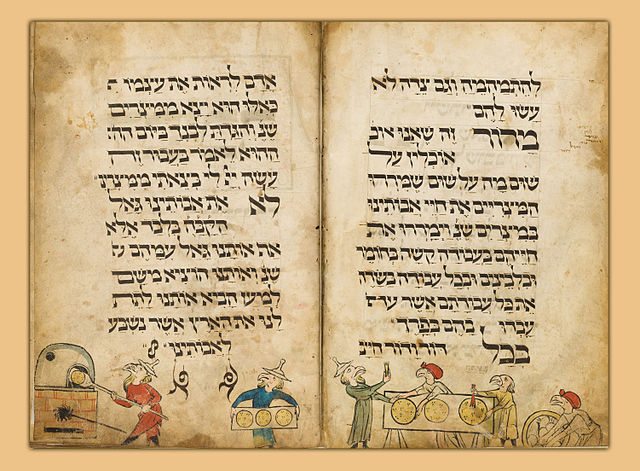 להתמהמה וגם צדה לא
עשו להם
מרור זה שאנו אוכ
אוכלין על
שום מה על שום שמררו
המצריים את חיי אבותינו
במצרים שנ וימררו את
חייהם בעבודה קשה בחומ
ובלבינים ובכל עבודה בשדה
את כל עבודתם אשר
עבדו בהם בפרך
בכל דור ודור חייב
אדם לראות את עצמו
כאלו הוא יצא ממצרים
שנ והגדת לבנך ביום הה
ההוא לאמר בעבור זה
עשה יי לי בצאתי ממצרי
לא את אבותינו גאל
הקבה בלבד אלא
את אותנו גאל עמהם
שנ ואותנו הוציא משם
למען הביא אותנו לתת
לנו את הארץ אשר נשבע
לאבותינו